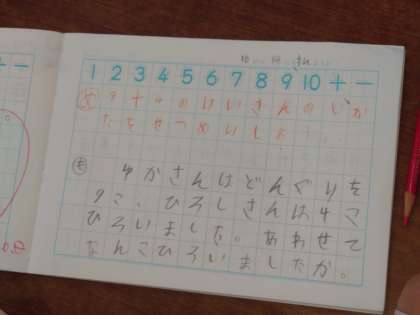 1 2 3 4 5 6 7 8 9 10 + -
め 9+4のけいさんのしか
たをせつめいしよう
も ゆかさんはどんぐりを
9こ、ひろしさんは4こ
ひろいました。あわせて
なんこひろいましたか。